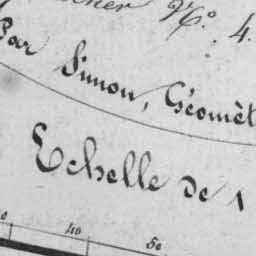 N.º 4.
Par Simon, Géomèt
Echelle de 1
0 40 50